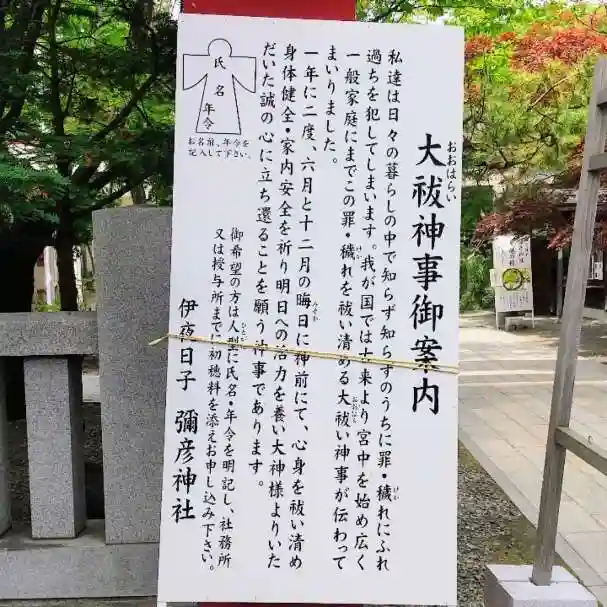 おおはらい
大祓神事御案内
私達は日々の暮らしの中で知らず知らずのうちに罪・穢れにふれ
過ちを犯してしまいます。我が国では古来より宮中を始め広く
一般家庭にまでこの罪・穢れを祓い清める大祓い神事が伝わって
まいりました。
一年に二度、六月と十二月の晦日に神前にて、心身を祓い清め
身体健全・家内安全を祈り明日への活力を養い大神様よりいた
だいた誠の心に立ち還ることを願う神事であります。
御希望の方は人型に氏名・年令を明記し、社務所
又は授与所までに初穂料を添えお申し込み下さい。
伊夜日子 彌彦神社
氏名
年令
お名前、年令を
記入して下さい。